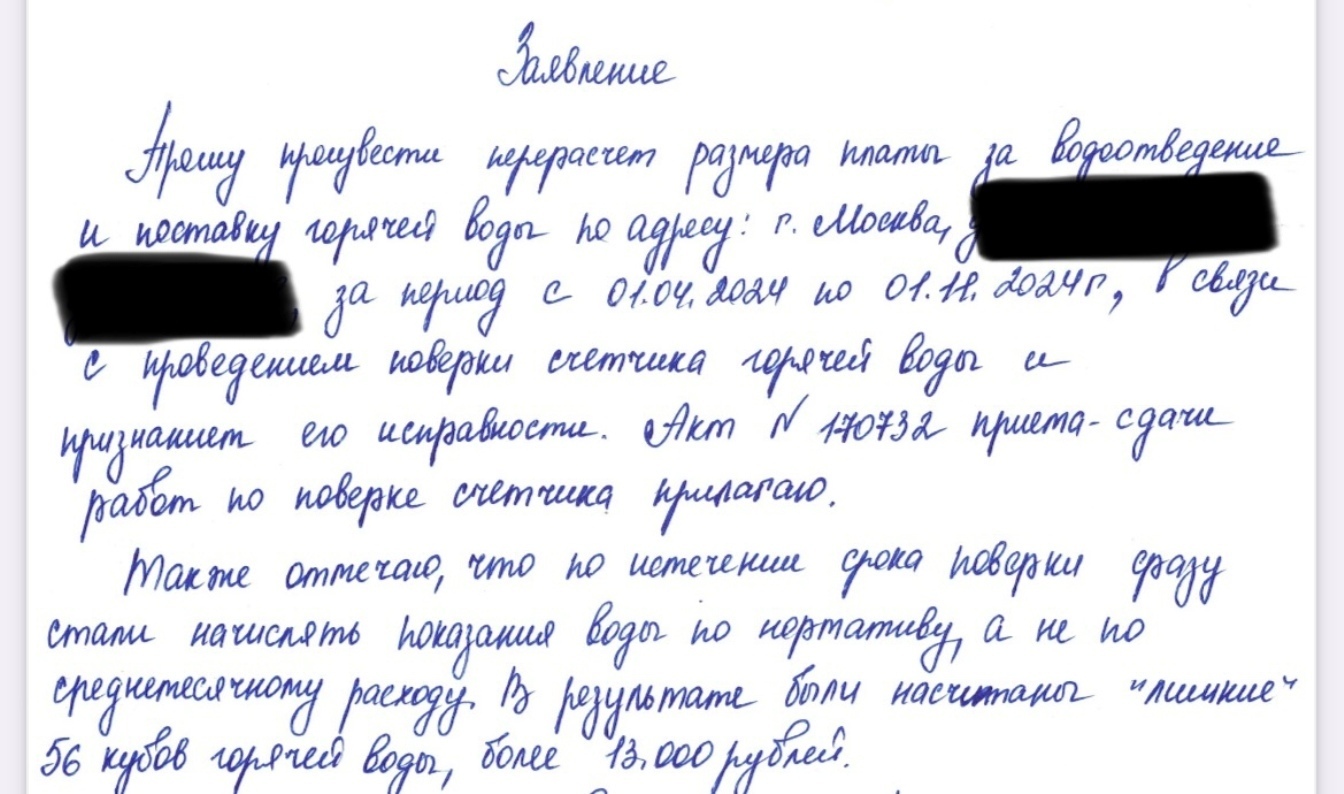 Заявление
Прошу произвести перерасчет размера платы за водоотведение
и поставку горячей воды по адресу: г. Москва,
за период с 01.04.2024 по 01.11.2024г, в связи
с проведением поверки счетчика горячей воды и
признанием его исправности. Акт № 170732 приема-сдачи
работ по поверке счетчика прилагаю.
Также отмечаю, что по истечении срока поверки сразу
стали начислять показания воды по нормативу, а не по
среднемесячному расходу. В результате были насчитаны "лишние"
56 кубов горячей воды, более 13.000 рублей.